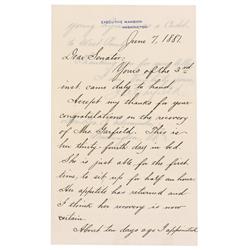 EXECUTIVE MANSION
WASHINGTON
June 7, 1881
Dear Senator,
Yours of the 3rd
inst. came duly to hand.
Accept my thanks for your
congratulations on the recovery
of Mrs. Garfield. This is
her thirty-fourth day in bed
She is just able for the first
time, to sit up for half an hour.
Her appetite has returned and
I think her recovery is now
certain.
About ten days ago I appointed